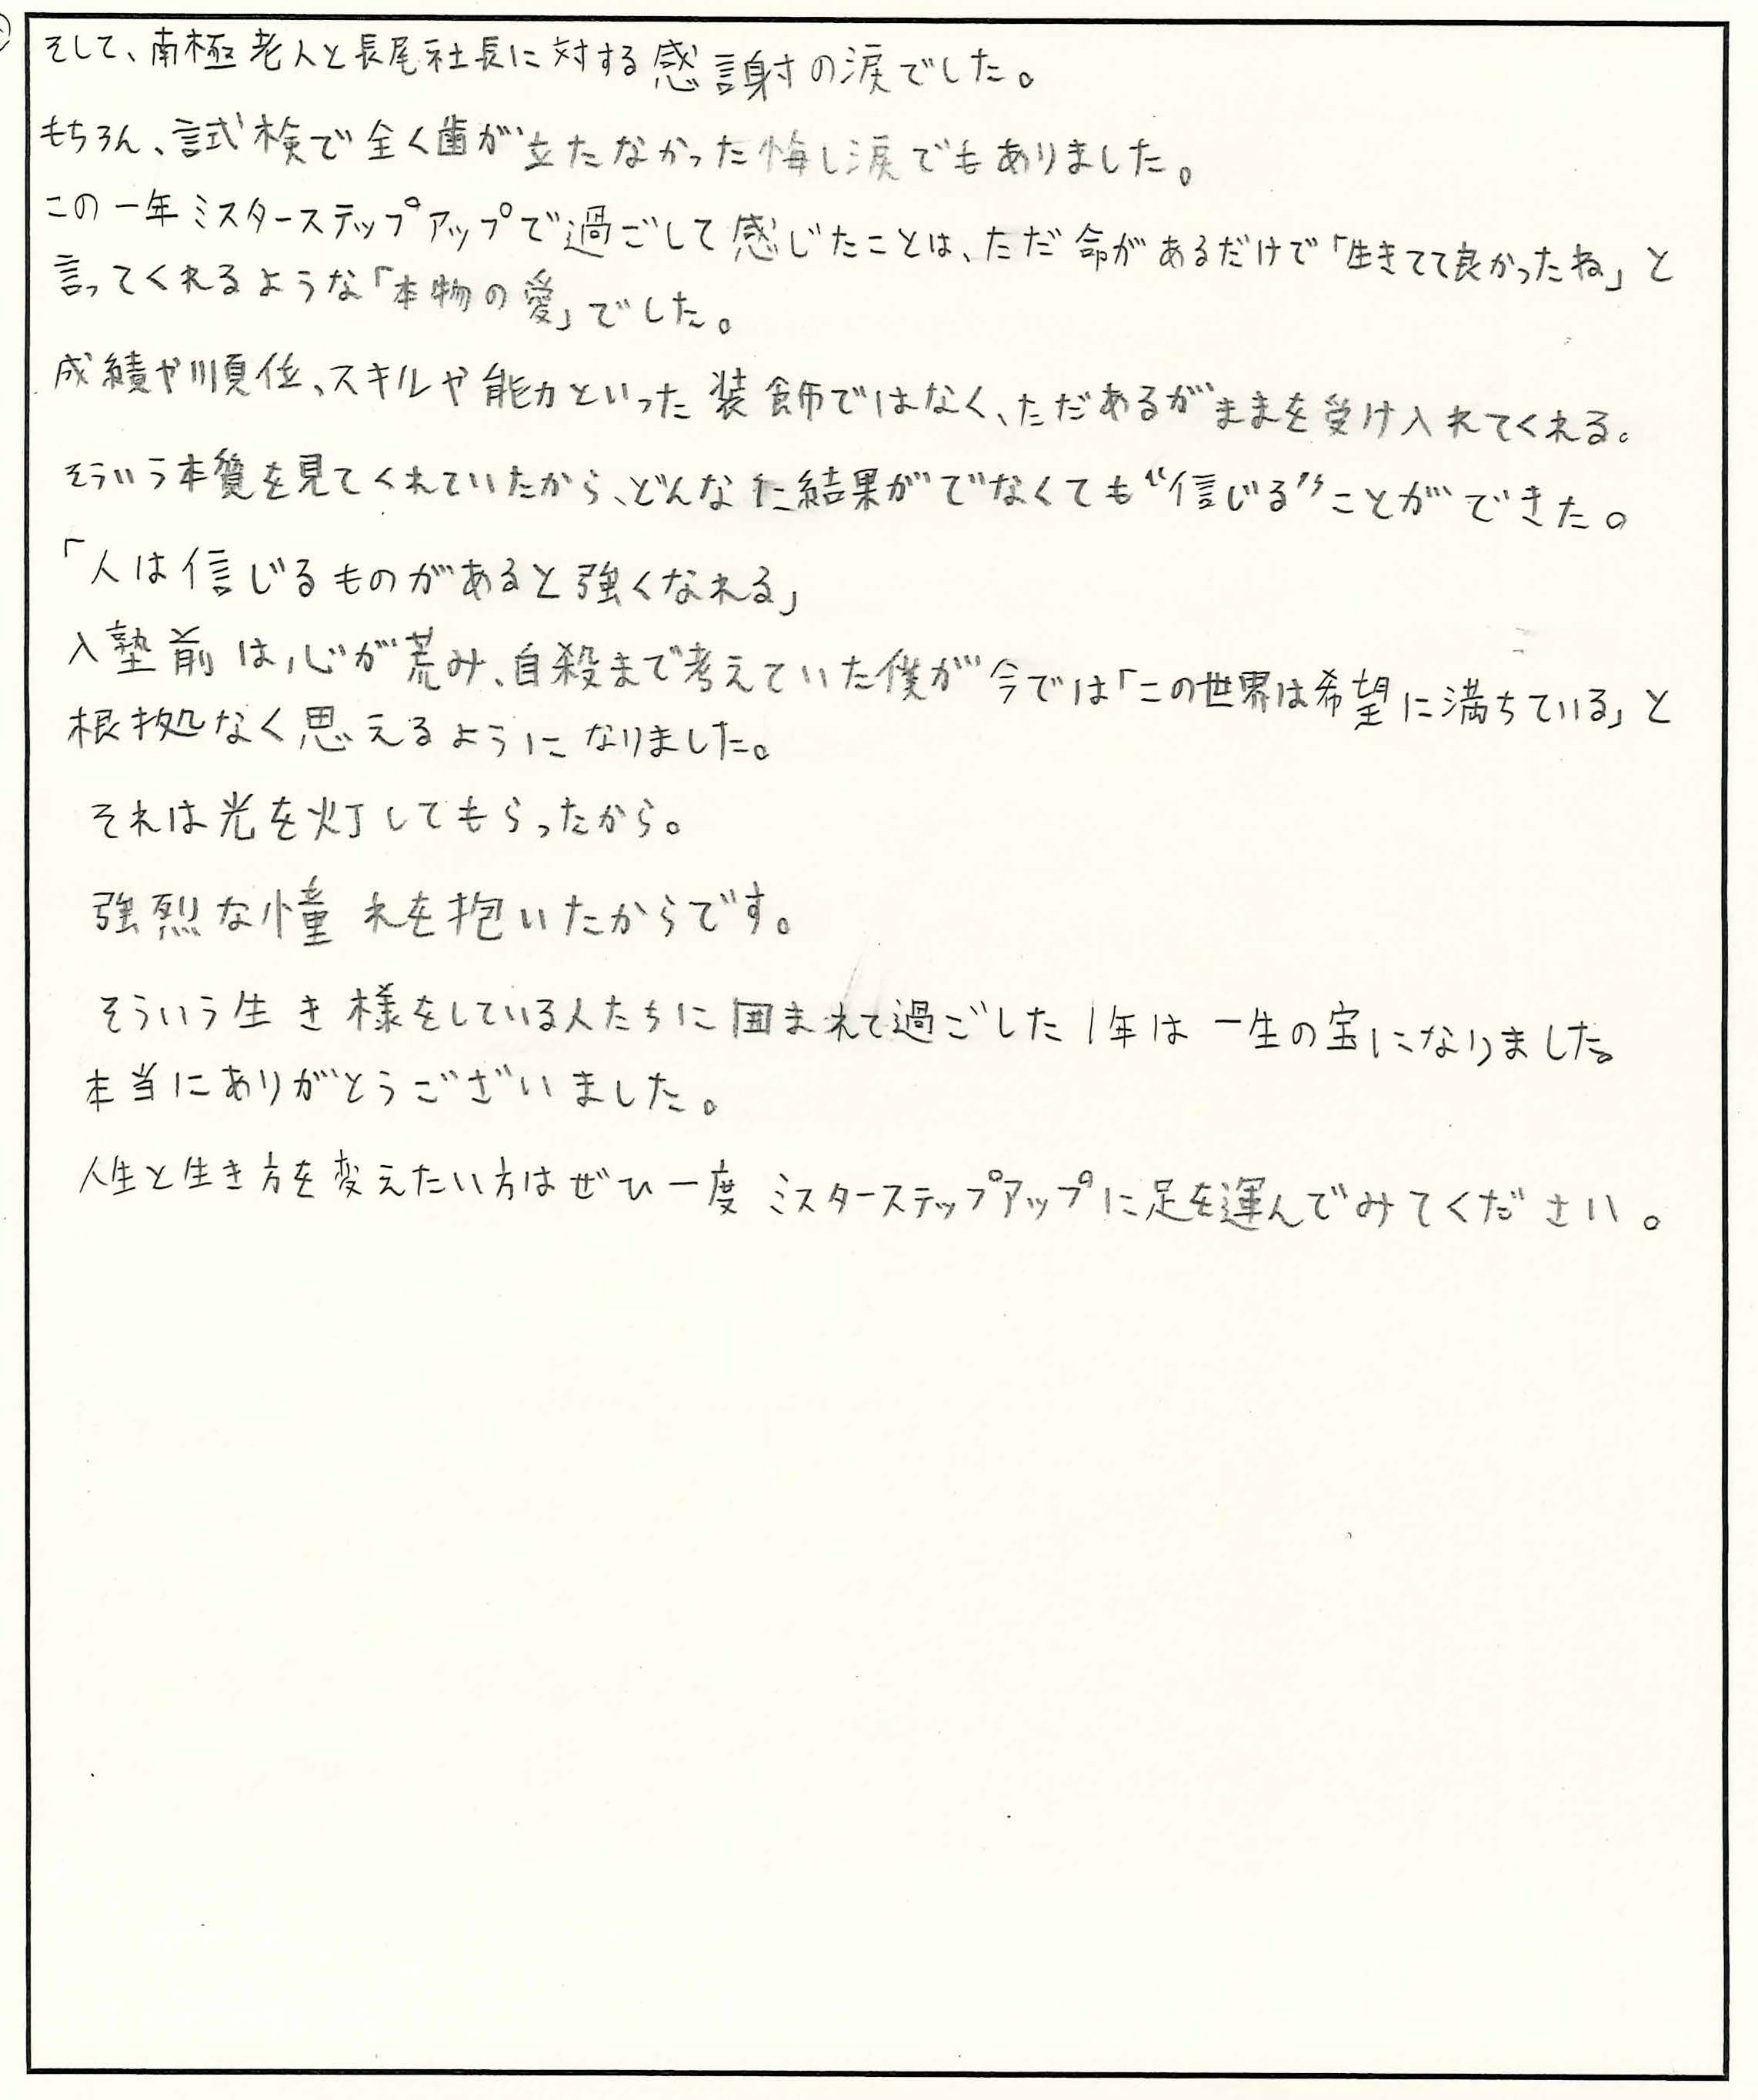 そして、南極老人と長尾社長に対する感謝の涙でした。
もちろん、試検で全く歯が立たなかった悔し涙でもありました。
この一年ミスターステップアップで過ごして感じたことは、ただ命があるだけで「生きてて良かったね」と
言ってくれるような「本物の愛」でした。
成績や順位、スキルや能力といった装飾ではなく、ただあるがままを受け入れてくれる。
そういう本質を見てくれていたから、どんなた結果がでなくても“信じる”ことができた。
「人は信じるものがあると強くなれる」
入塾前は心が荒み、自殺まで考えていた僕が今では「この世界は希望に満ちている」と
根拠なく思えるようになりました。
それは光を灯してもらったから。
強烈な憧れを抱いたからです。
そういう生き様をしている人たちに囲まれて過ごした1年は一生の宝になりました。
本当にありがとうございました。
人生と生き方を変えたい方はぜひ一度ミスターステップアップに足を運んでみてください。